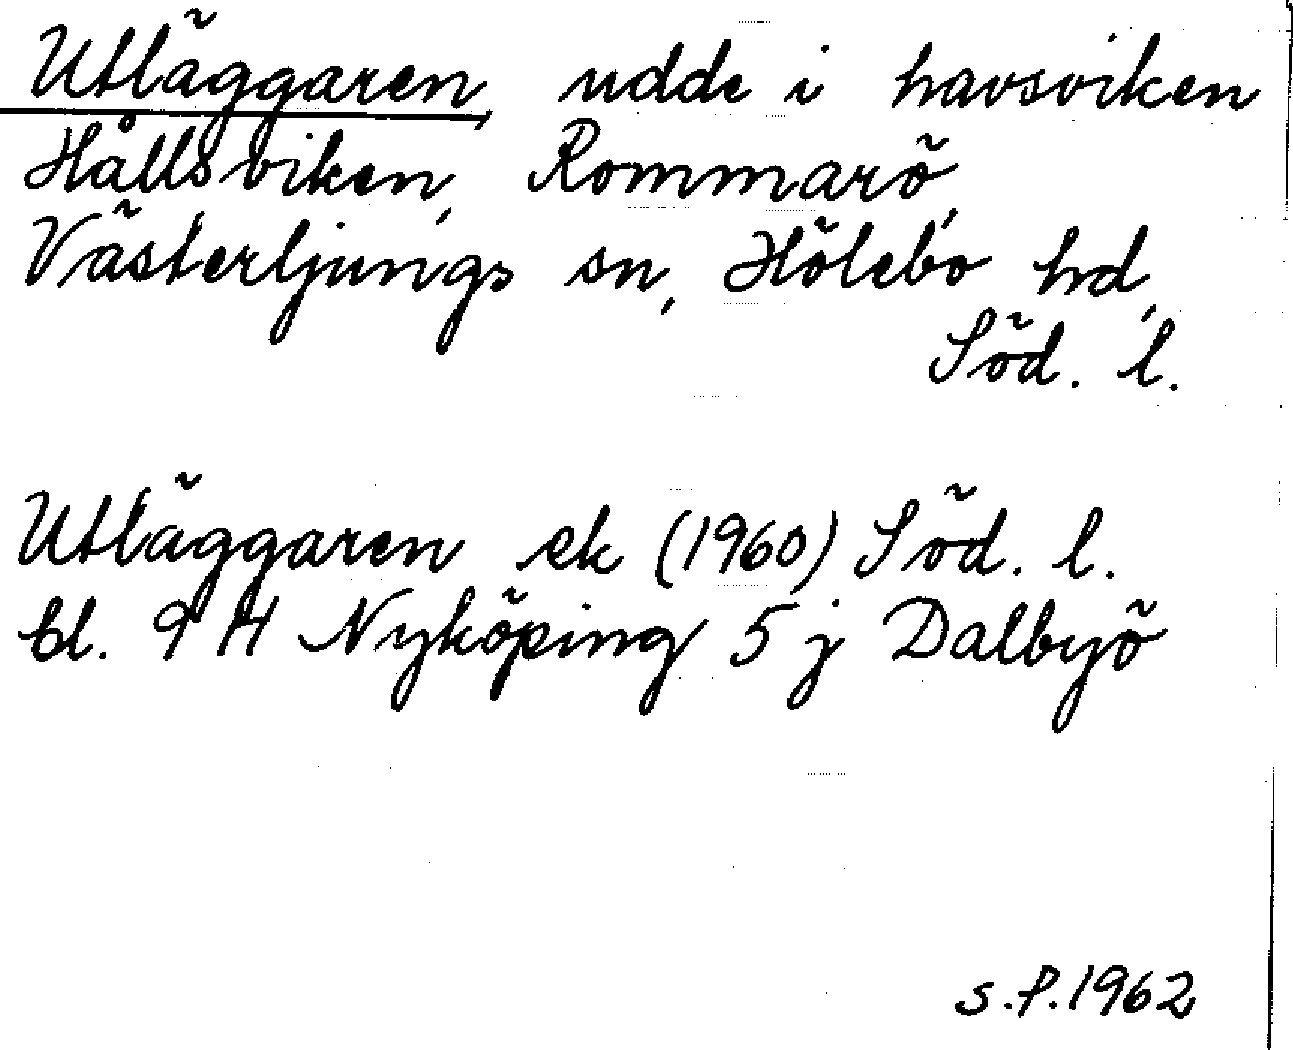 Utläggaren, udde i havsviken
Hållsviken, Rommarö,
Västerljungs sn, Hölebo hd,
Söd. l.
Utläggaren ek (1960) Söd. l.
bl. 9 H Nyköping 5 j Dalbyö
S.P. 1962